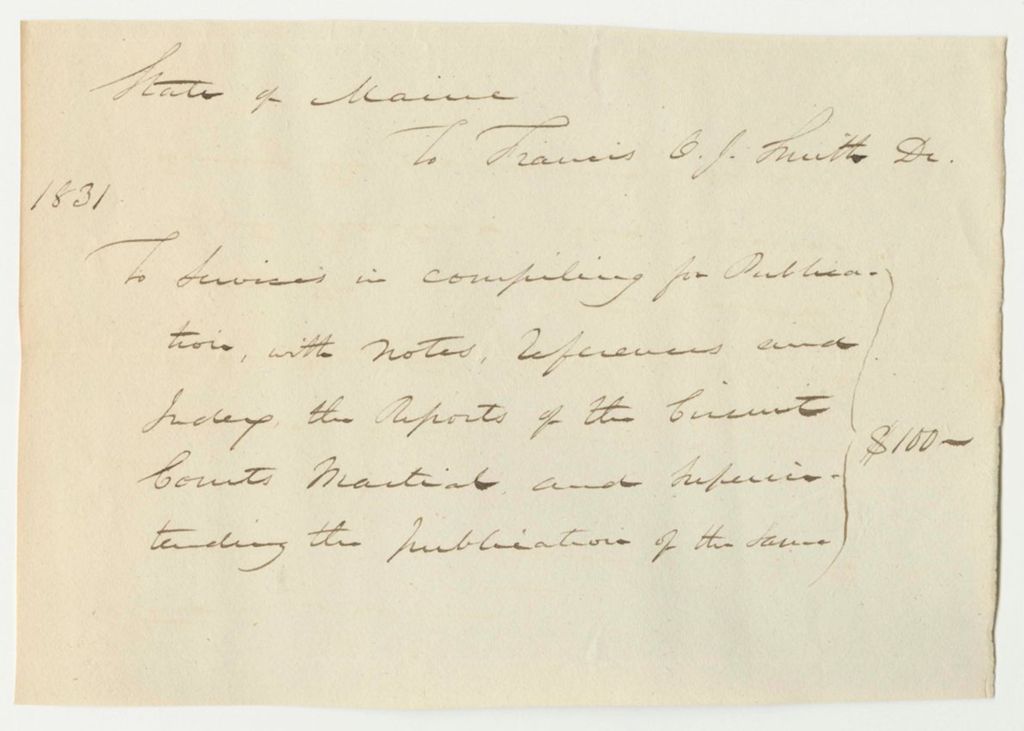 State of Maine
To Francis O. J. Smith Dr.
1831
To Services in compiling for Publica-
tion, with notes, references and
Index, the Reports of the Circuit
Courts Martial, and Superin-
tending the publication of the same
$100-